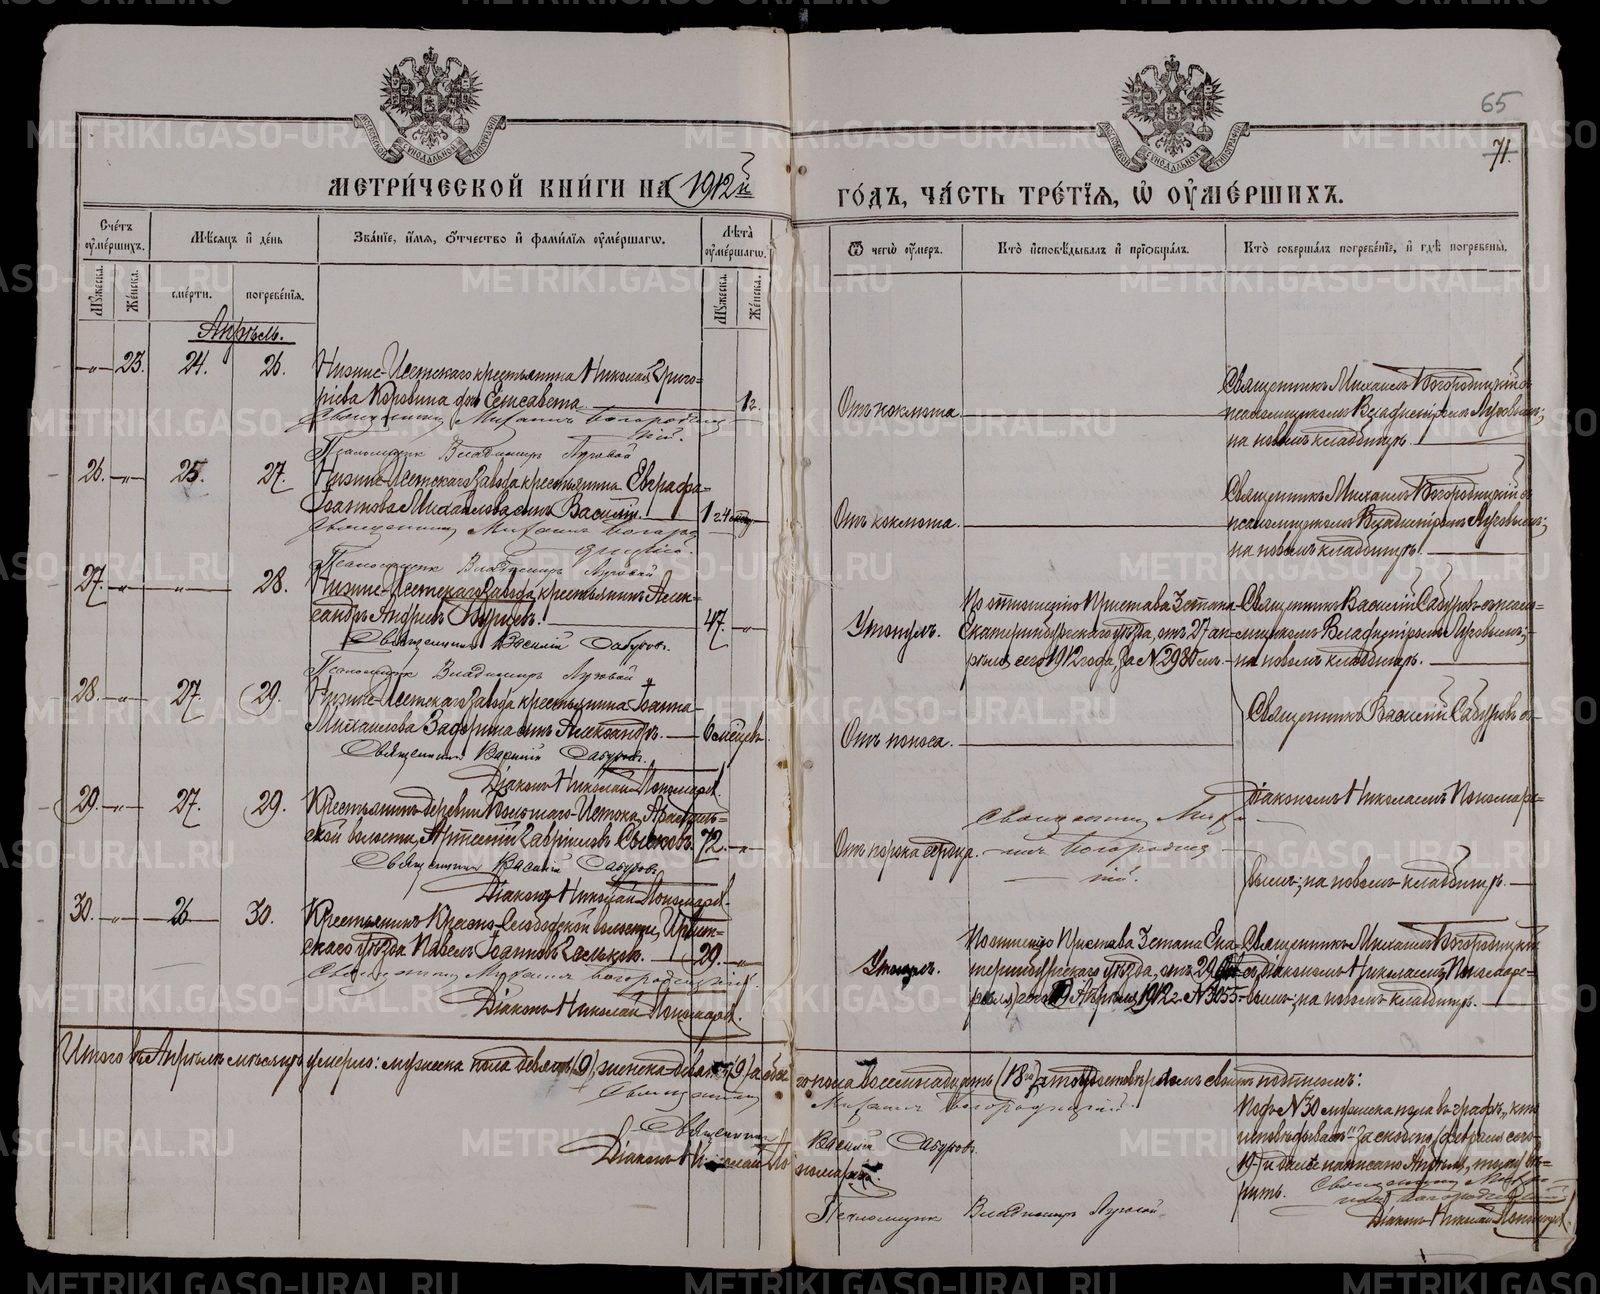 65
71.
МЕТРИ́ЧЕСКОЙ КНИ́ГИ НА 1912й
ГО́ДЪ, ЧА́СТЬ ТРЕ́ТІЯ, Ѡ ОУМЕ́РШИХЪ.
Сче́тъ оуме́ршихъ.
Мѣ́сяцъ и де́нь
Зва́ніе, и́мя, о́тчество и фами́лія оуме́ршагѡ.
Лѣ́та оуме́ршагѡ.
Ѿ чегѡ̀ о́умеръ.
Кто̀ исповѣ́дывалъ и пріобща́лъ.
Кто̀ соверша́лъ погребе́ніе, и гдѣ̀ погребены̀.
Му́жеска.
Же́нска.
сме́рти.
погребе́нія.
Му́жеска.
Же́нска.
Апрѣль.
23. 24. 26.
Нижне-Исетскаго крестьянина Николая Григо-
рiева Коровина дочь Елисавета 1 г.
Священникъ Михаилъ Богородиц
кій.
Псаломщик Владимиръ Луговой
Отъ коклюша.
Священникъ Михаилъ Богородицкій съ
псаломщикомъ Владиміромъ Луговымъ;
на новомъ кладбищѣ.
26. 25. 27.
Нижне-Исетскаго завода крестьянина Евграфа
Іоаннова Михайлова сынъ Василій.
Священникъ Михаилъ Богород
ицкій.
Псаломщик Владимиръ Луговой
Отъ коклюша.
Священникъ Михаилъ Богородицкій съ
псаломщикомъ Владиміромъ Луговымъ;
на новомъ кладбищѣ.
27. 28.
Нижне-Исетскаго завода крестьянинъ Алек-
сандръ Андреевъ 47.
Священникъ Василій Сабуровъ.
Псаломщик Владимиръ Луговой
Утонулъ.
По отношенію Пристава 3 стана
Екатеринбургскаго уѣзда, отъ 27 ап-
рѣля сего 1912 года, за № 2980
Священникъ Василій Сабуровъ съ псало-
мщикомъ Владиміромъ Луговымъ;
на новомъ кладбищѣ.
28. 27. 29.
Нижне-Исетскаго завода крестьянина Іоанна
Михаилова сынъ Александръ. 6 мѣсцевъ
Священникъ Василій Сабуровъ.
Діаконъ Николай Пономаревъ.
Отъ поноса.
Священникъ Василій Сабуровъ съ
29. 27. 29.
Крестьянинъ деревни Большаго-Истока, Арамиль-
ской волости, Артемій Гавріиловъ 72.
Священникъ Василій Сабуровъ
Діаконъ Николай Пономаревъ.
Отъ порока сердца.
Священникъ Миха
илъ Богородиц
кій.
діакономъ Николаемъ Пономаре-
вымъ; на новомъ кладбищѣ.
30. 26 30.
Крестьянинъ Красно-Слободской волости, Ирбит-
скаго уѣзда Павелъ Іоанновъ 29.
Священникъ Михаилъ Богородицкій.
Діаконъ Николай Пономаревъ.
По отношенію Пристава 3 стана Ека-
теринбургскаго уѣзда, отъ 29
Апрѣля 1912 г. № 3055
Священникъ Михаилъ Богородицкій
съ діакономъ Николаемъ Пономаре-
вымъ; на новомъ кладбищѣ.
Итого въ Апрѣлѣ мѣсяцѣ умерло: мужеска пола девять (9), женска девять (9), а обое-
го пола восемнадцать (18), въ томъ удостовѣряемъ своимъ подписомъ:
Священникъ Михаилъ Богородицкій.
Священникъ Василій Сабуровъ.
Діаконъ Николай Пономаревъ.
Псаломщик Владимиръ Луговой.
Подъ № 30 мужеска пола въ графѣ „кто
исповѣдывалъ" за скобою /февраля сего
19/ и далѣе написано Апрѣля, тому вѣ-
рить. Священникъ Миха
илъ Богородицкій
Діаконъ Николай Пономаревъ
METRIKI.GASO-URAL.RU